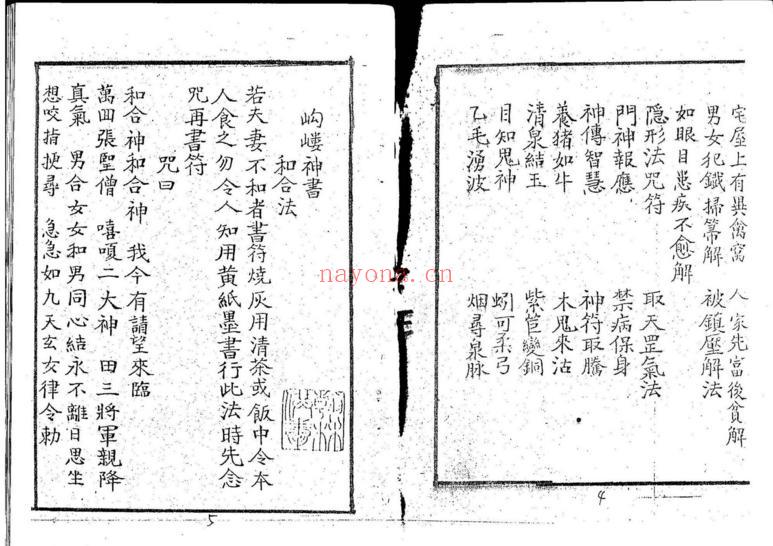 宅屋上有異禽窩 人家先富後貧解
男女犯鐵掃箒解 被鎮壓解法
如眼目患疾不愈解
隱形法咒符 取天罡氣法
門神報應 禁病保身
神傳智慧 神符取騰
養猪如牛 木鬼來沽
清泉結玉 紫笸變銅
目知鬼神 蚓可柔弓
乙毛湧波 烟尋泉脉
4
岣嶁神書
和合法
若夫妻不和者書符燒灰用清茶或飯中令本
人食之勿令人知用黄紙墨書行此法時先念
咒再書符
咒曰
和合神和合神 我今有請望來臨
萬回張聖僧 嘻嗄二大神 田三將軍親降
真氣 男合女女和男同心結永不離日思坐
想咬指挭尋 急急如九天玄女律令勅
5
nayona.cn